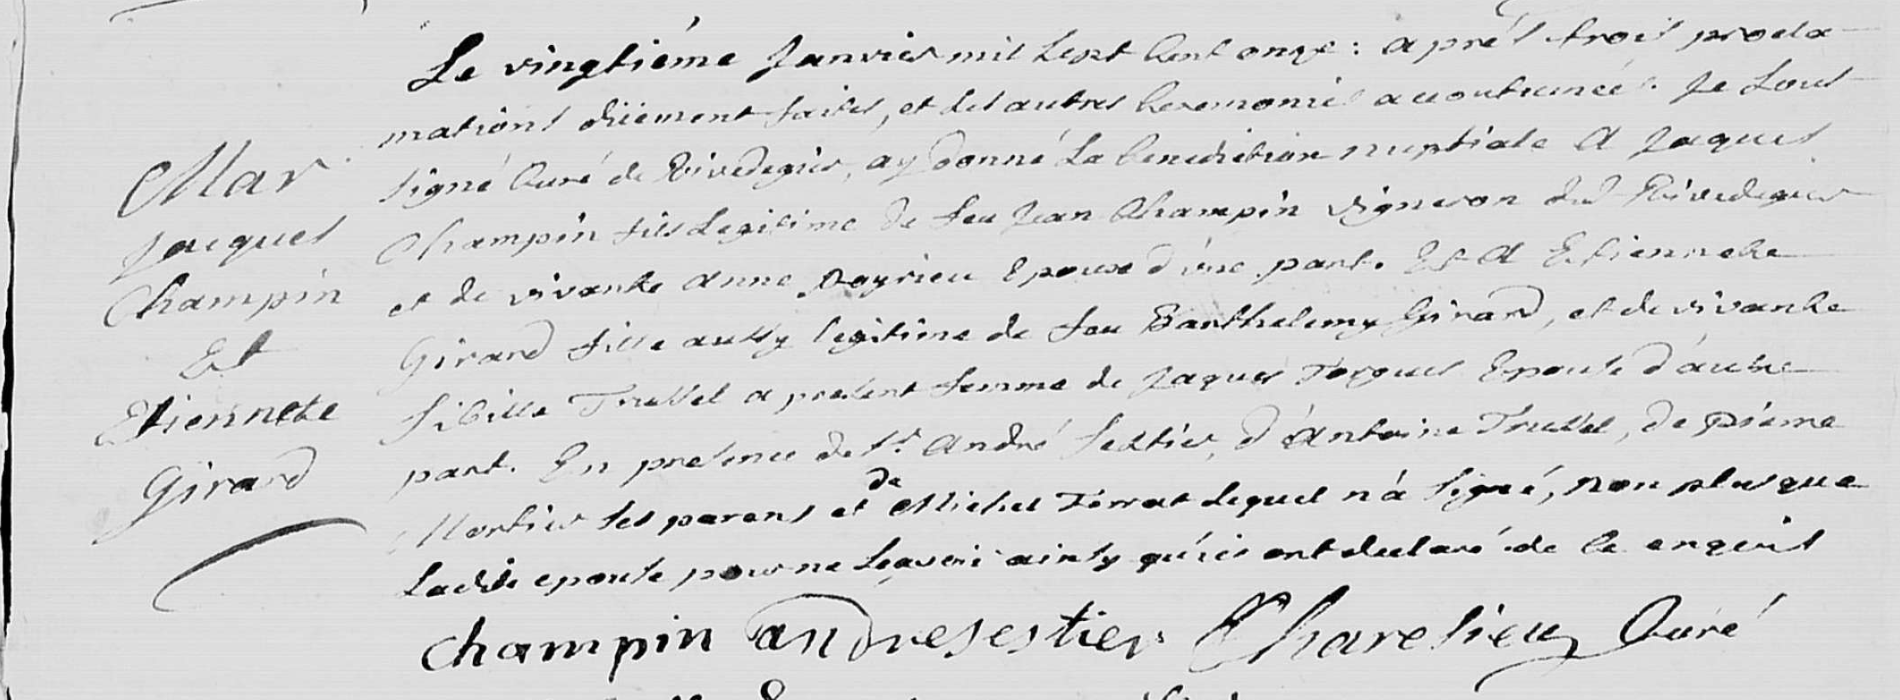 Le vingtiéme Janvier mil sept cent onze : aprés trois procla-
mations düement faites, et les autres ceremonies accoutumées. Je sous-
signé Curé de Rivedegier, ay donné la benediction nuptiale A Jaques
Champin fils Legitime de feu Jean Champin vigneron dud. Rivedegier
et de vivante Anne Epoux d'une part. Et A Etiennete
Girard fille aussy legitime de feu Barthelemy Girard, et de vivante
Sibille Trussel a present femme de Jaques Epouse d'autre
part. En presence de Sr. André Sestier, d'Antoine Trussel, de Pierre
Mortier ses parens et de Michel Terrat lequel n'à signé, non plus que
Ladite epouse pour ne sçavoir ainsy qu'ils ont declaré de ce enquis
Mar
Jacques
Champin
Et
Etiennete
Girard
champin andre sestier Charesieu Curé